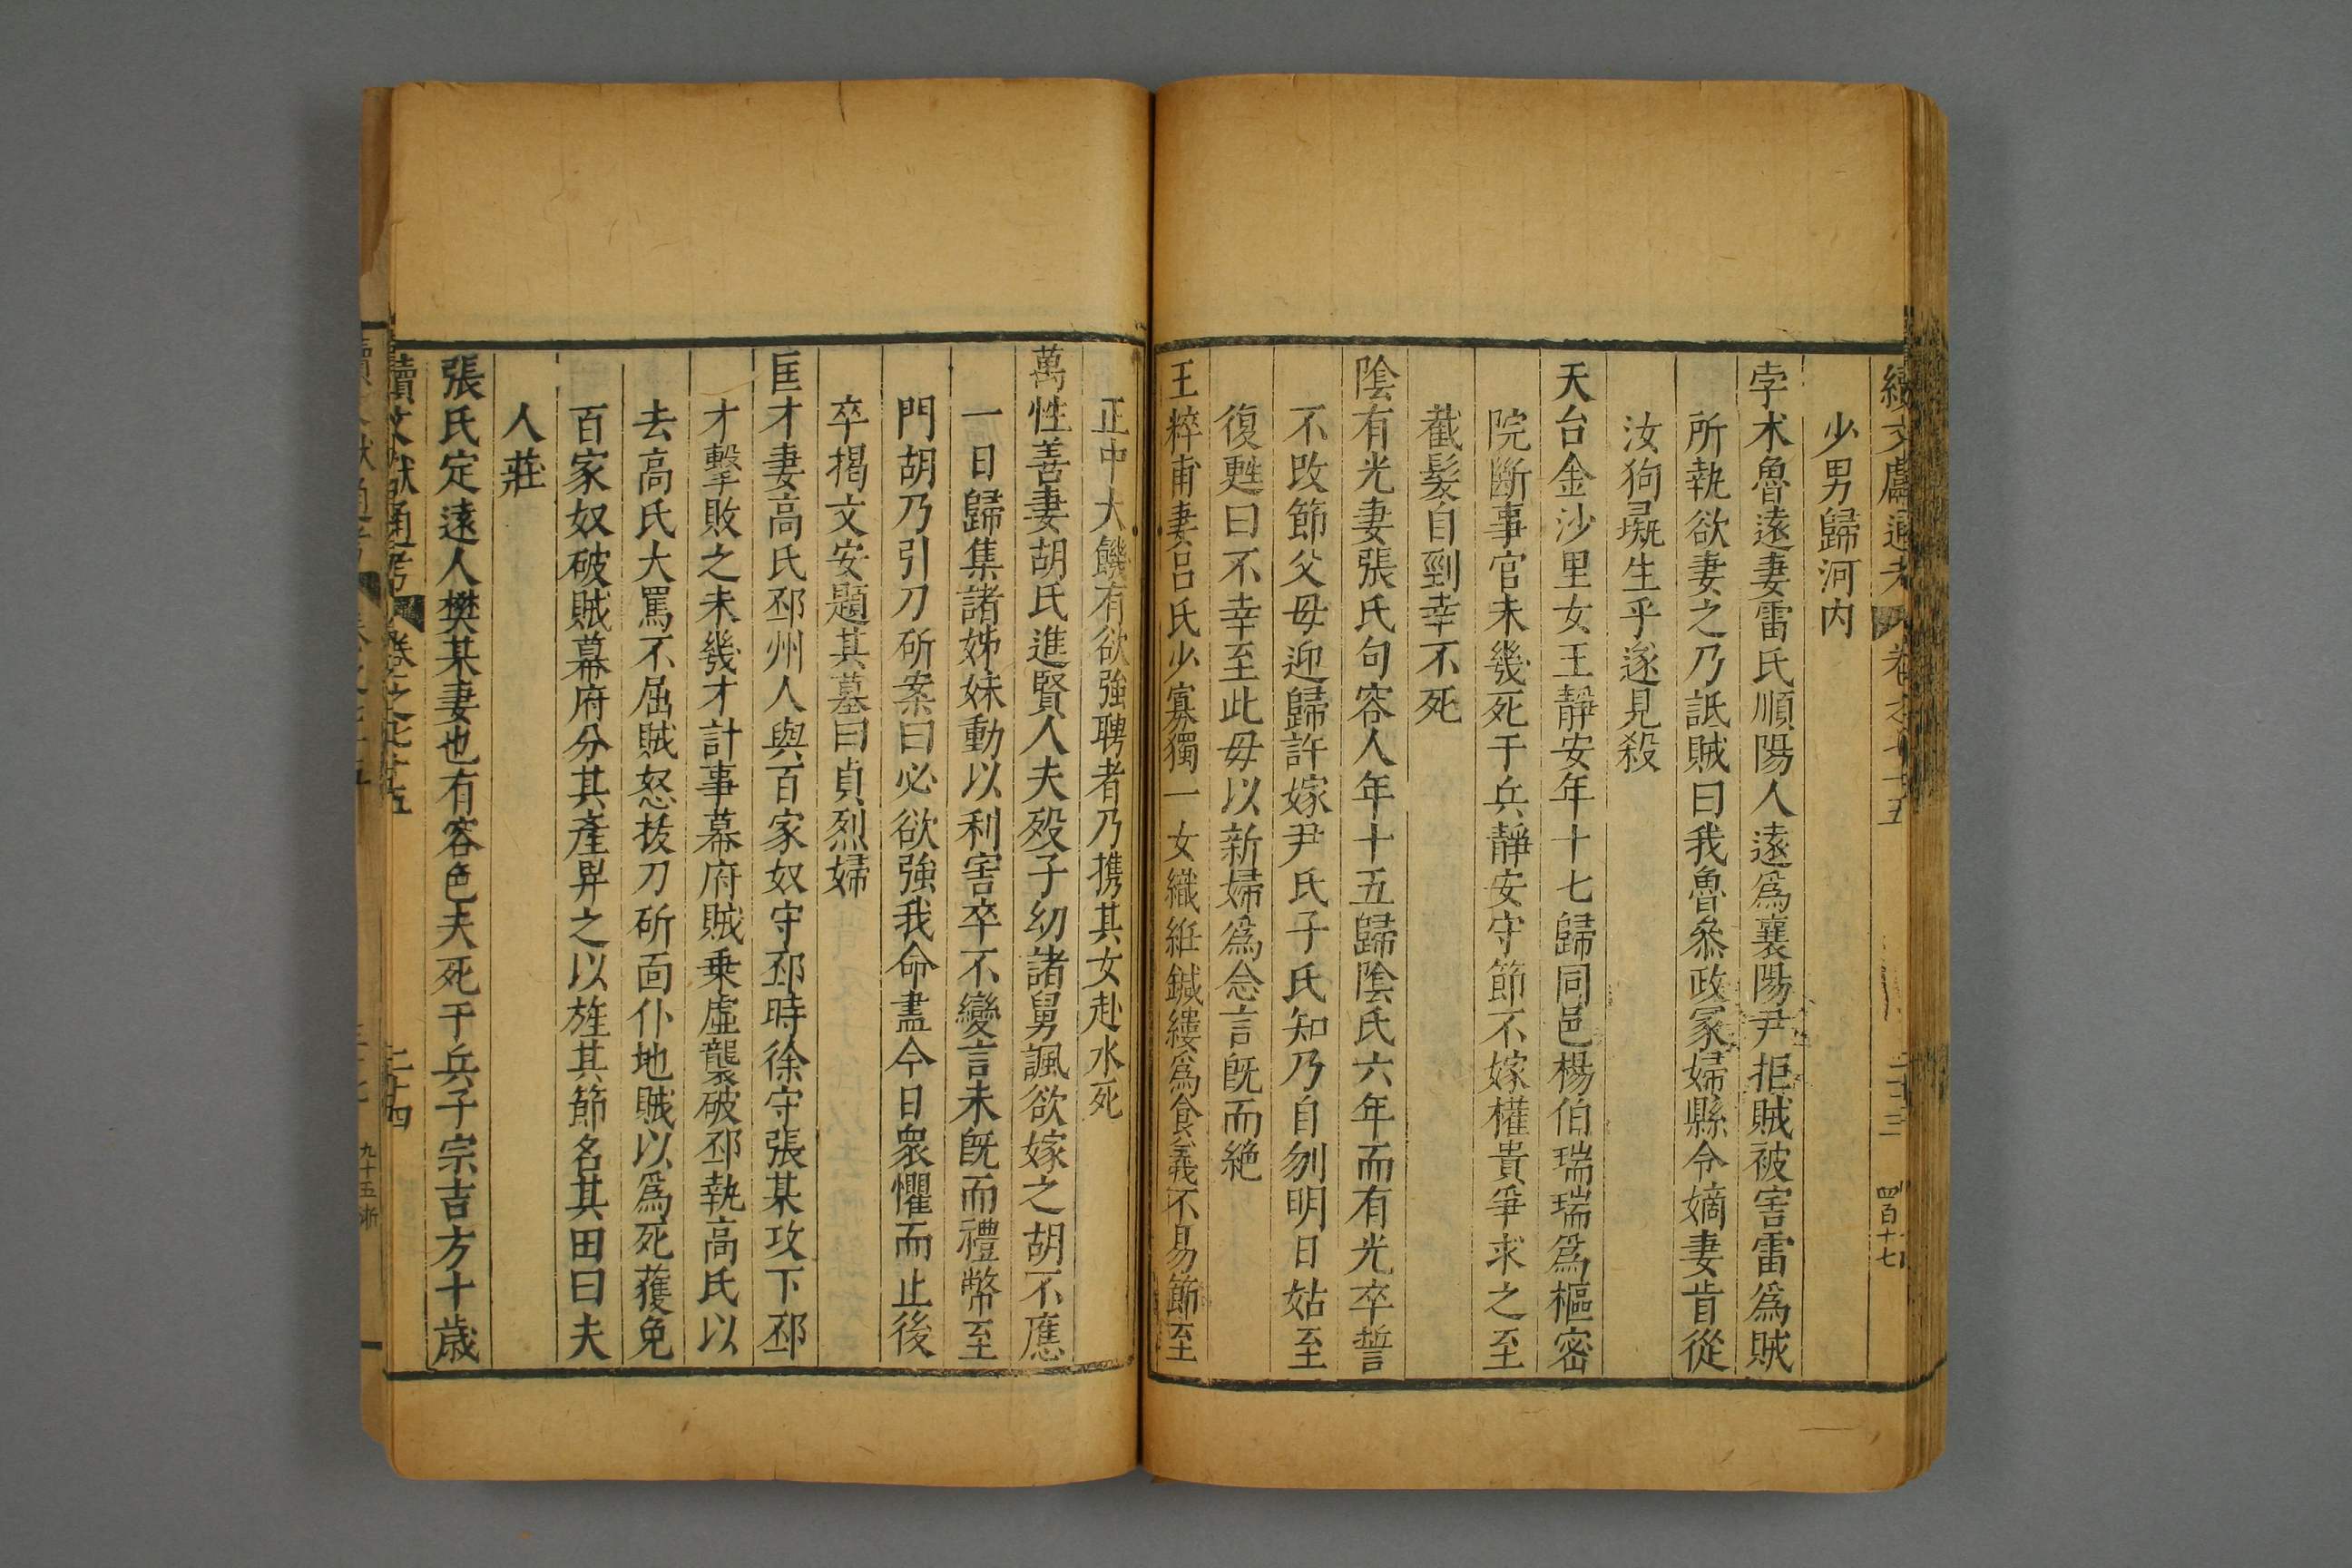 續文獻通考 卷之七十五 二十三 四百十七
少男歸河内
孛术魯遠妻雷氏順陽人遠爲襄陽尹拒賊被害雷爲賊
所執欲妻之乃詆賊曰我魯叅政冢婦縣令嫡妻肯從
汝狗彘生乎遂見殺
天台金沙里女王靜安年十七歸同邑楊伯瑞瑞爲樞密
院斷事官未幾死于兵靜安守節不嫁權貴爭求之至
截髮自剄幸不死
陰有光妻張氏句容人年十五歸陰氏六年而有光卒誓
不改節父母迎歸許嫁尹氏子氏知乃自刎明日姑至
復甦曰不幸至此毋以新婦爲念言旣而絶
王粹甫妻呂氏少寡獨一女織絍鍼縷爲食義不易節至
正中大饑有欲強聘者乃携其女赴水死
萬性善妻胡氏進賢人夫歿子幼諸舅諷欲嫁之胡不應
一日歸集諸姊妹動以利害卒不變言未旣而禮幣至
門胡乃引刀斫案曰必欲強我命盡今日衆懼而止後
卒揭文安題其墓曰貞烈婦
匡才妻高氏邳州人與百家奴守邳時徐守張某攻下邳
才擊敗之未幾才計事幕府賊乗虛襲破邳執高氏以
去高氏大罵不屈賊怒拔刀斫面仆地賊以爲死獲免
百家奴破賊幕府分其產畀之以旌其節名其田曰夫
人莊
張氏定遠人樊某妻也有容色夫死于兵子宗吉方十歲
續文獻通考 卷之七十五 二十四
九十五 浙